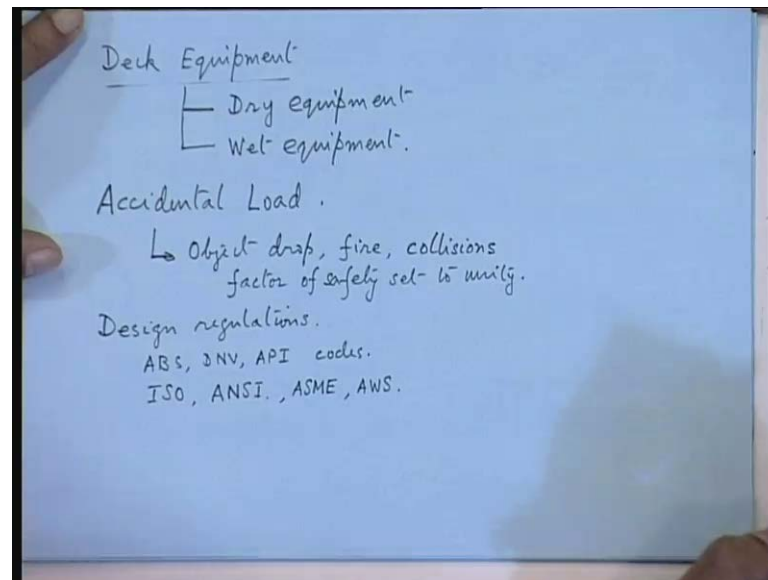 Deck Equipment
Dry equipment
Wet equipment.
Accidental Load.
Object drop, fire, collisions
factor of safety set to unity.
Design regulations.
ABS, DNV, API codes.
ISO, ANSI., ASME, AWS.